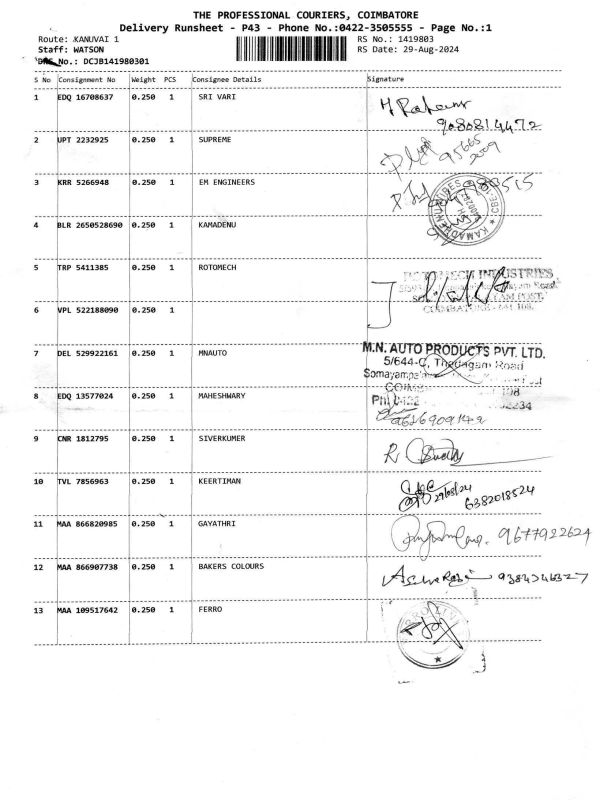 THE PROFESSIONAL COURIERS, COIMBATORE
Delivery Runsheet - P43 - Phone No.:0422-3505555 - Page No.:1
Route: KANUVAI 1 RS No.: 1419803
Staff: WATSON RS Date: 29-Aug-2024
No.: DCJB141980301
S No Consignment No Weight PCS Consignee Details Signature
1 EDQ 16708637 0.250 1 SRI VARI
9080814472
2 UPT 2232925 0.250 1 SUPREME
95665
2009
3 KRR 5266948 0.250 1 EM ENGINEERS
4 BLR 2650528690 0.250 1 KAMADENU
5 TRP 5411385 0.250 1 ROTOMECH
INDUSTRIES
6 VPL 522188090 0.250 1
7 DEL 529922161 0.250 1 MNAUTO
M.N. AUTO PRODUCTS PVT. LTD.
5/644-C, Thadagam Road
8 EDQ 13577024 0.250 1 MAHESHWARY
9 CNR 1812795 0.250 1 SIVERKUMER
10 TVL 7856963 0.250 1 KEERTIMAN
29/08/24 6382018524
11 MAA 866820985 0.250 1 GAYATHRI
9677922624
12 MAA 866907738 0.250 1 BAKERS COLOURS
13 MAA 109517642 0.250 1 FERRO